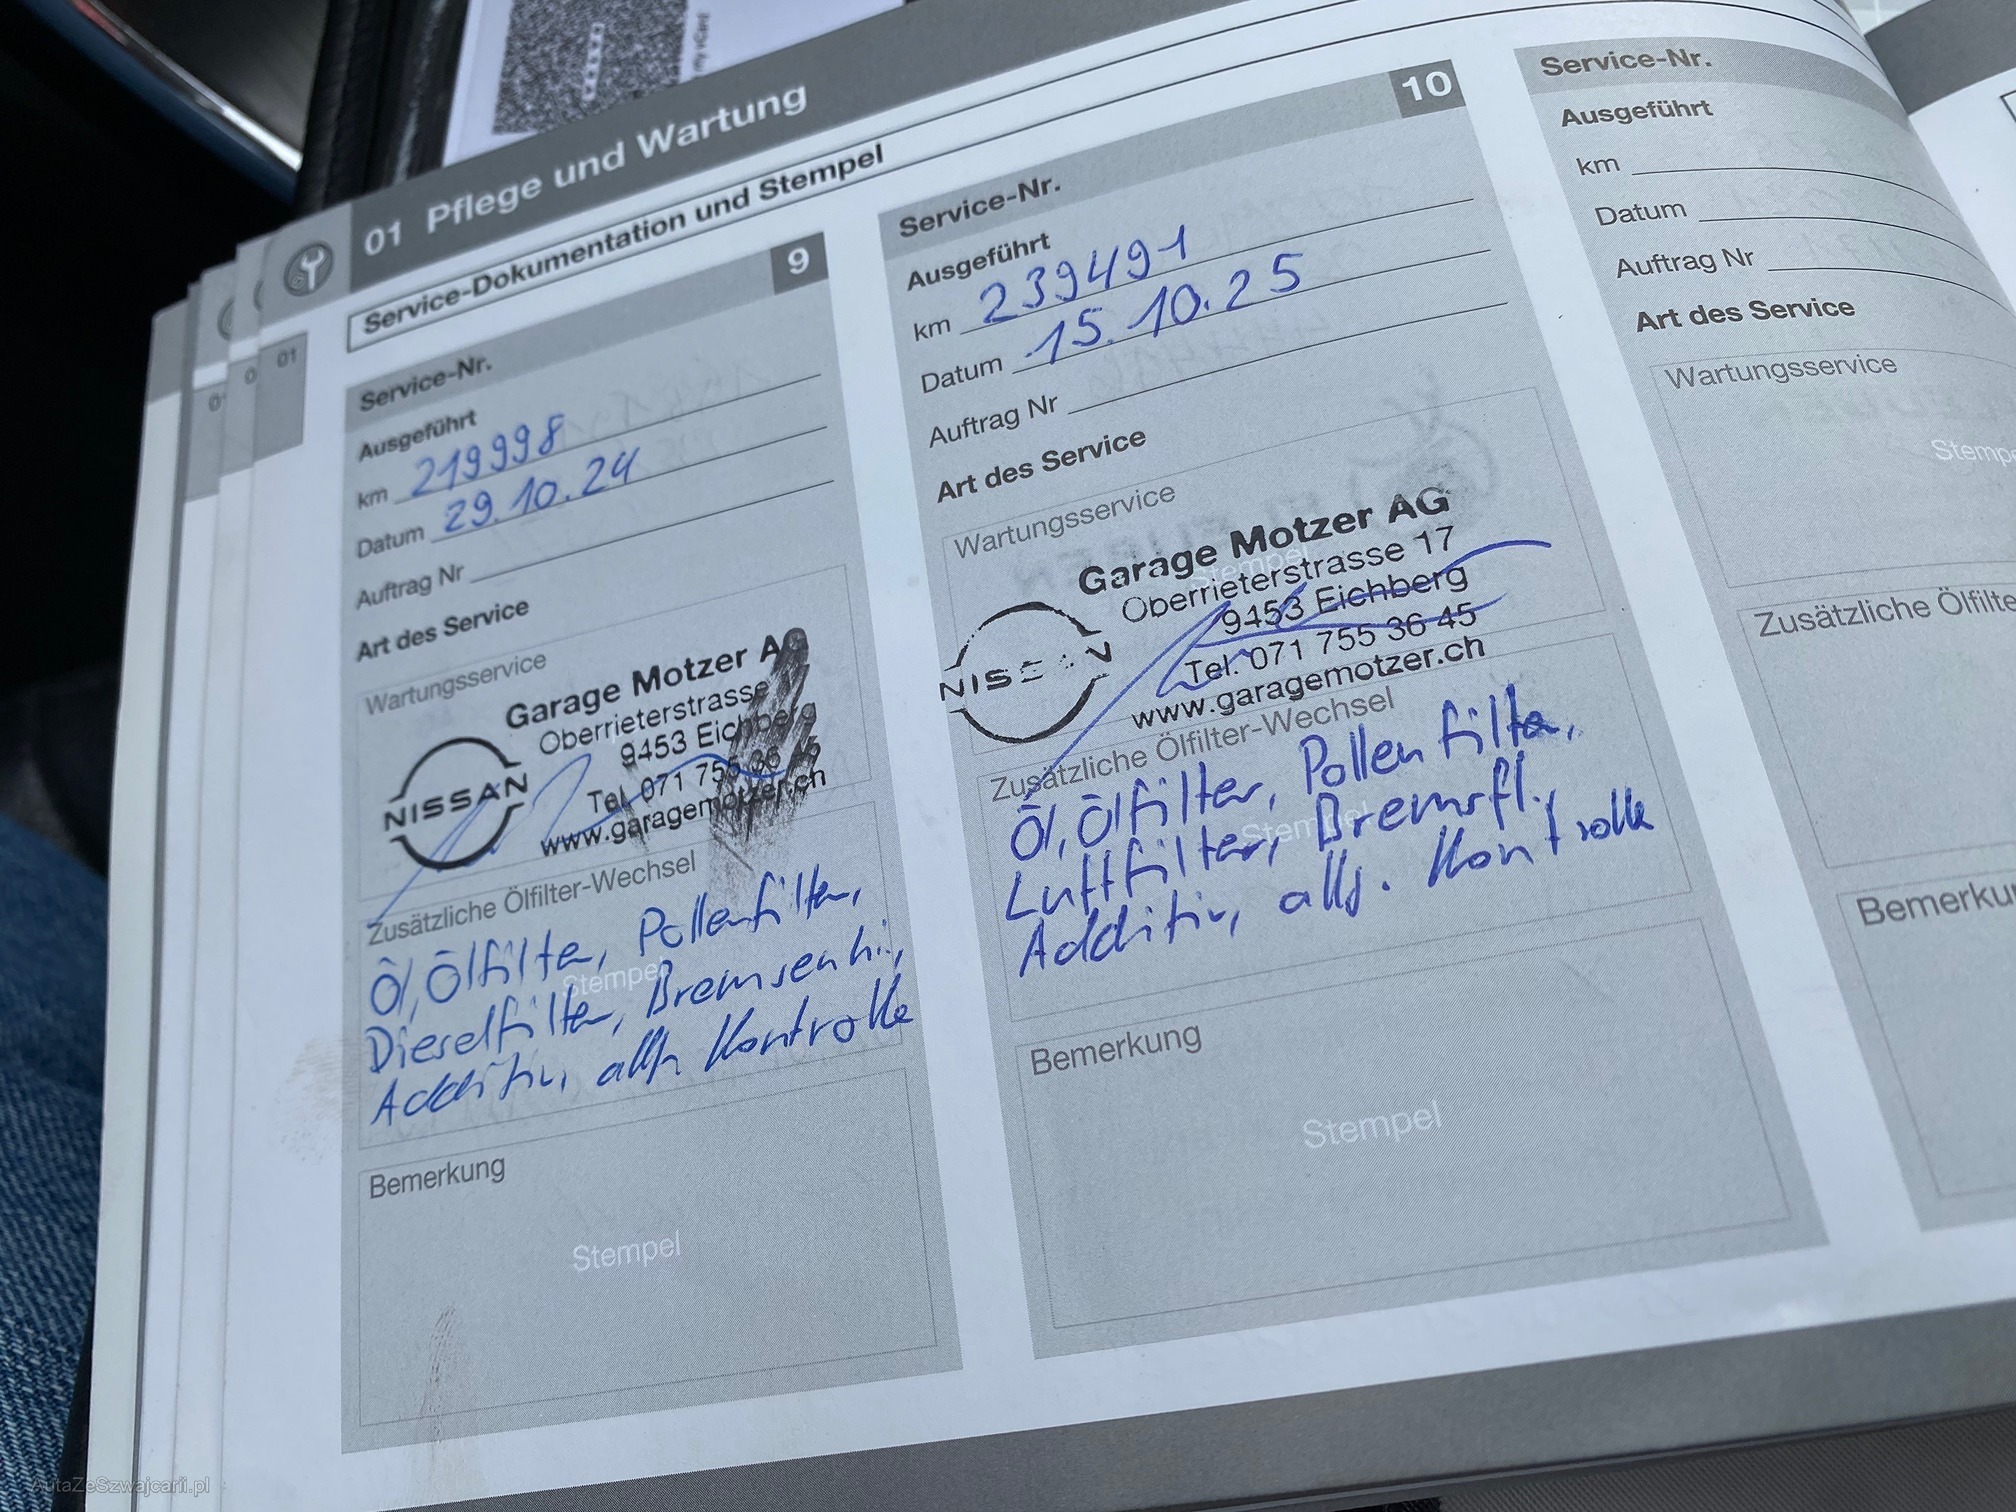 my vCard
01 Pflege und Wartung
Service-Dokumentation und Stempel
01
0
01
Service-Nr. 9
Ausgeführt
km 219998
Datum 29.10.24
Auftrag Nr
Art des Service
Wartungsservice
Garage Motzer AG
Oberrieterstrasse
9453 Eichberg
Tel. 071 755 36 45
www.garagemotzer.ch
NISSAN
Zusätzliche Ölfilter-Wechsel
Stempel
Öl, Ölfilter, Pollenfilter,
Dieselfilter, Bremsen hi.,
Additiv, allg. Kontrolle
Bemerkung
Stempel
Service-Nr. 10
Ausgeführt
km 239491
Datum 15.10.25
Auftrag Nr
Art des Service
Wartungsservice
Stempel
Garage Motzer AG
Oberrieterstrasse 17
9453 Eichberg
Tel. 071 755 36 45
www.garagemotzer.ch
NISSAN
Zusätzliche Ölfilter-Wechsel
Stempel
Öl, Ölfilter, Pollenfilter,
Luftfilter, Bremsfl.,
Additiv, allg. Kontrolle
Bemerkung
Stempel
Service-Nr.
Ausgeführt
km
Datum
Auftrag Nr
Art des Service
Wartungsservice
Stempe
Zusätzliche Ölfilte
Bemerku
AutaZeSzwajcarii.pl